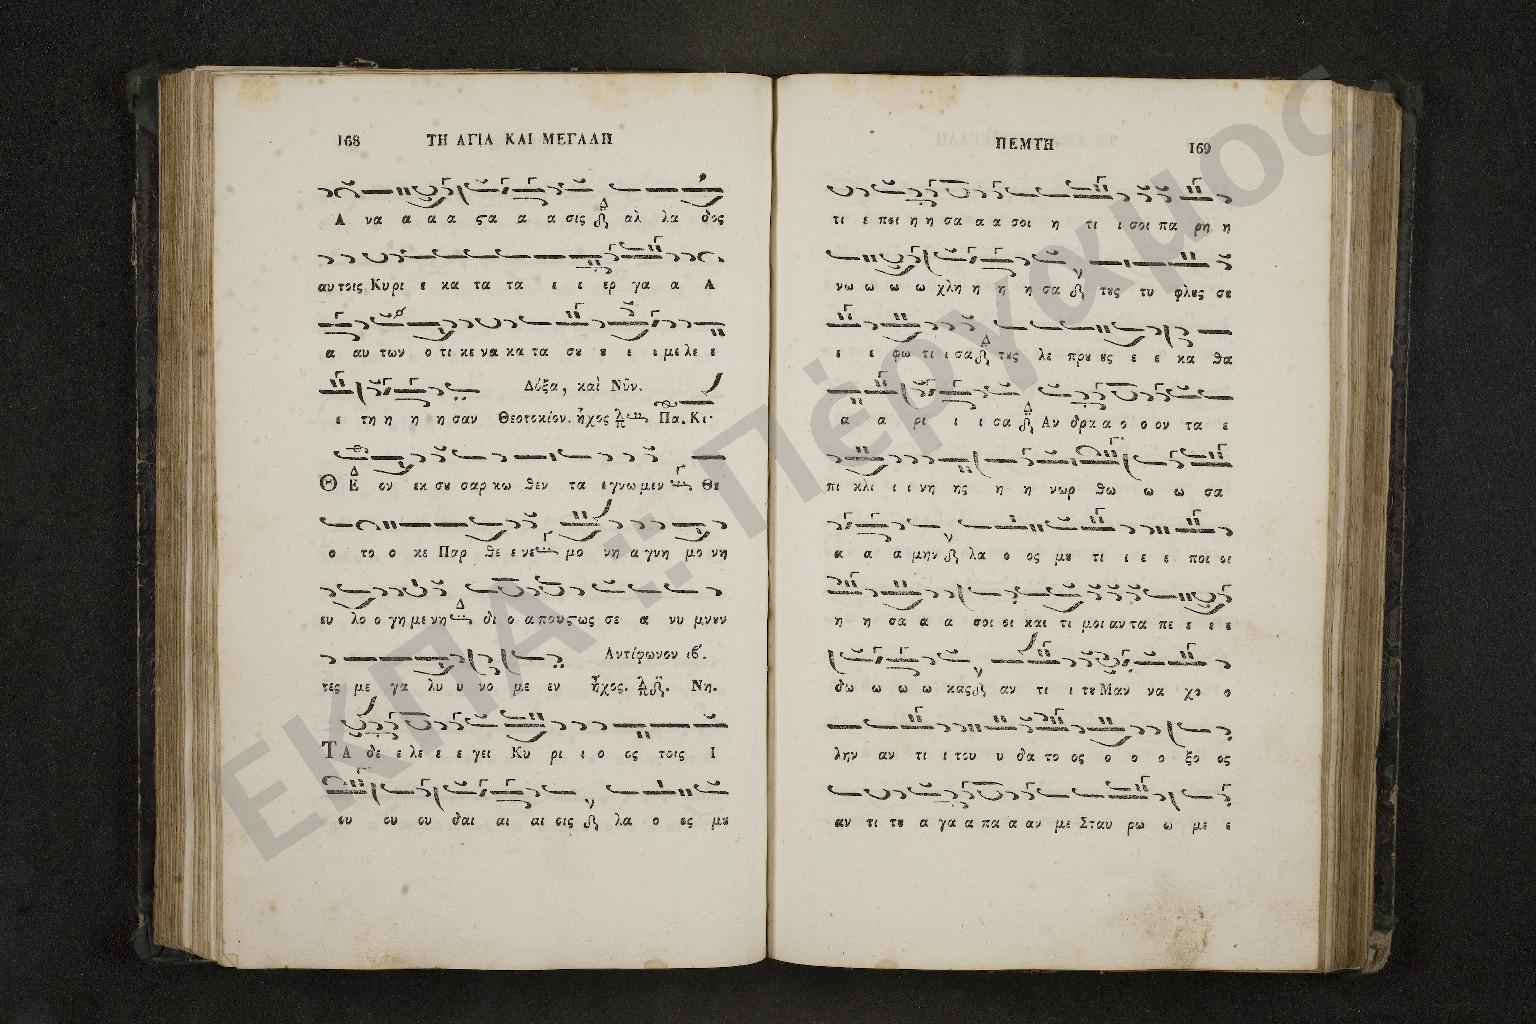 168 ΤΗ ΑΓΙΑ ΚΑΙ ΜΕΓΑΛΗ
Α να α α α ϛα α α σις αλ λα δος
αυ τοις Κυρι ε κα τα τα ε ε ερ γα α Α
α αυ των ο τι κε να κα τα σου ου ε ε με λε ε
Δόξα, καὶ Νῦν.
ε τη η η η σαν Θεοτοκίον. ἦχος Πα. Κι·
Θ Ε ον εκ σου σαρ κω θεν τα ε γνω μεν Θε
ο το ο κε Παρ θε ε νε μο νη α γνη μο νη
ευ λο ο γη με νη δι ο α παυ ϛως σε α νυ μνουν
Αντίφωνον ιϐ.
τες με γα λυ υ νο με εν ἦχος. Νη.
ΤΑ δε ε λε ε ε γει Κυ ρι ι ο ος τοις Ι
ου ου ου δαι αι αι οις λα ο ος μου
ΠΕΜΤΗ 169
τι ε ποι η η σα α α σοι η τι ι σοι πα ρη η
νω ω ω ω χλη η η η σα τους τυ φλους σου
ε ε φω τι ι σα τους λε πρου ους ε ε κα θα
α α ρι ι ι σα Αν δρα α ο ο ον τα ε
πι κλι ι ι νη ης η η νωρ θω ω ω σα
α α α μην λα ο ος μου τι ι ε ε ποι οι
η η σα α α σοι οι και τι μοι αν τα πε ε ε ε
δω ω ω ω κας αν τι ι του Μαν να χο ο
λην αν τι ι του υ δα το ος ο ο ο ξο ος
αν τι του α γα α πα α αν με Σταυ ρω ω με ε
ΕΚΠΑ :: Πέργαμος